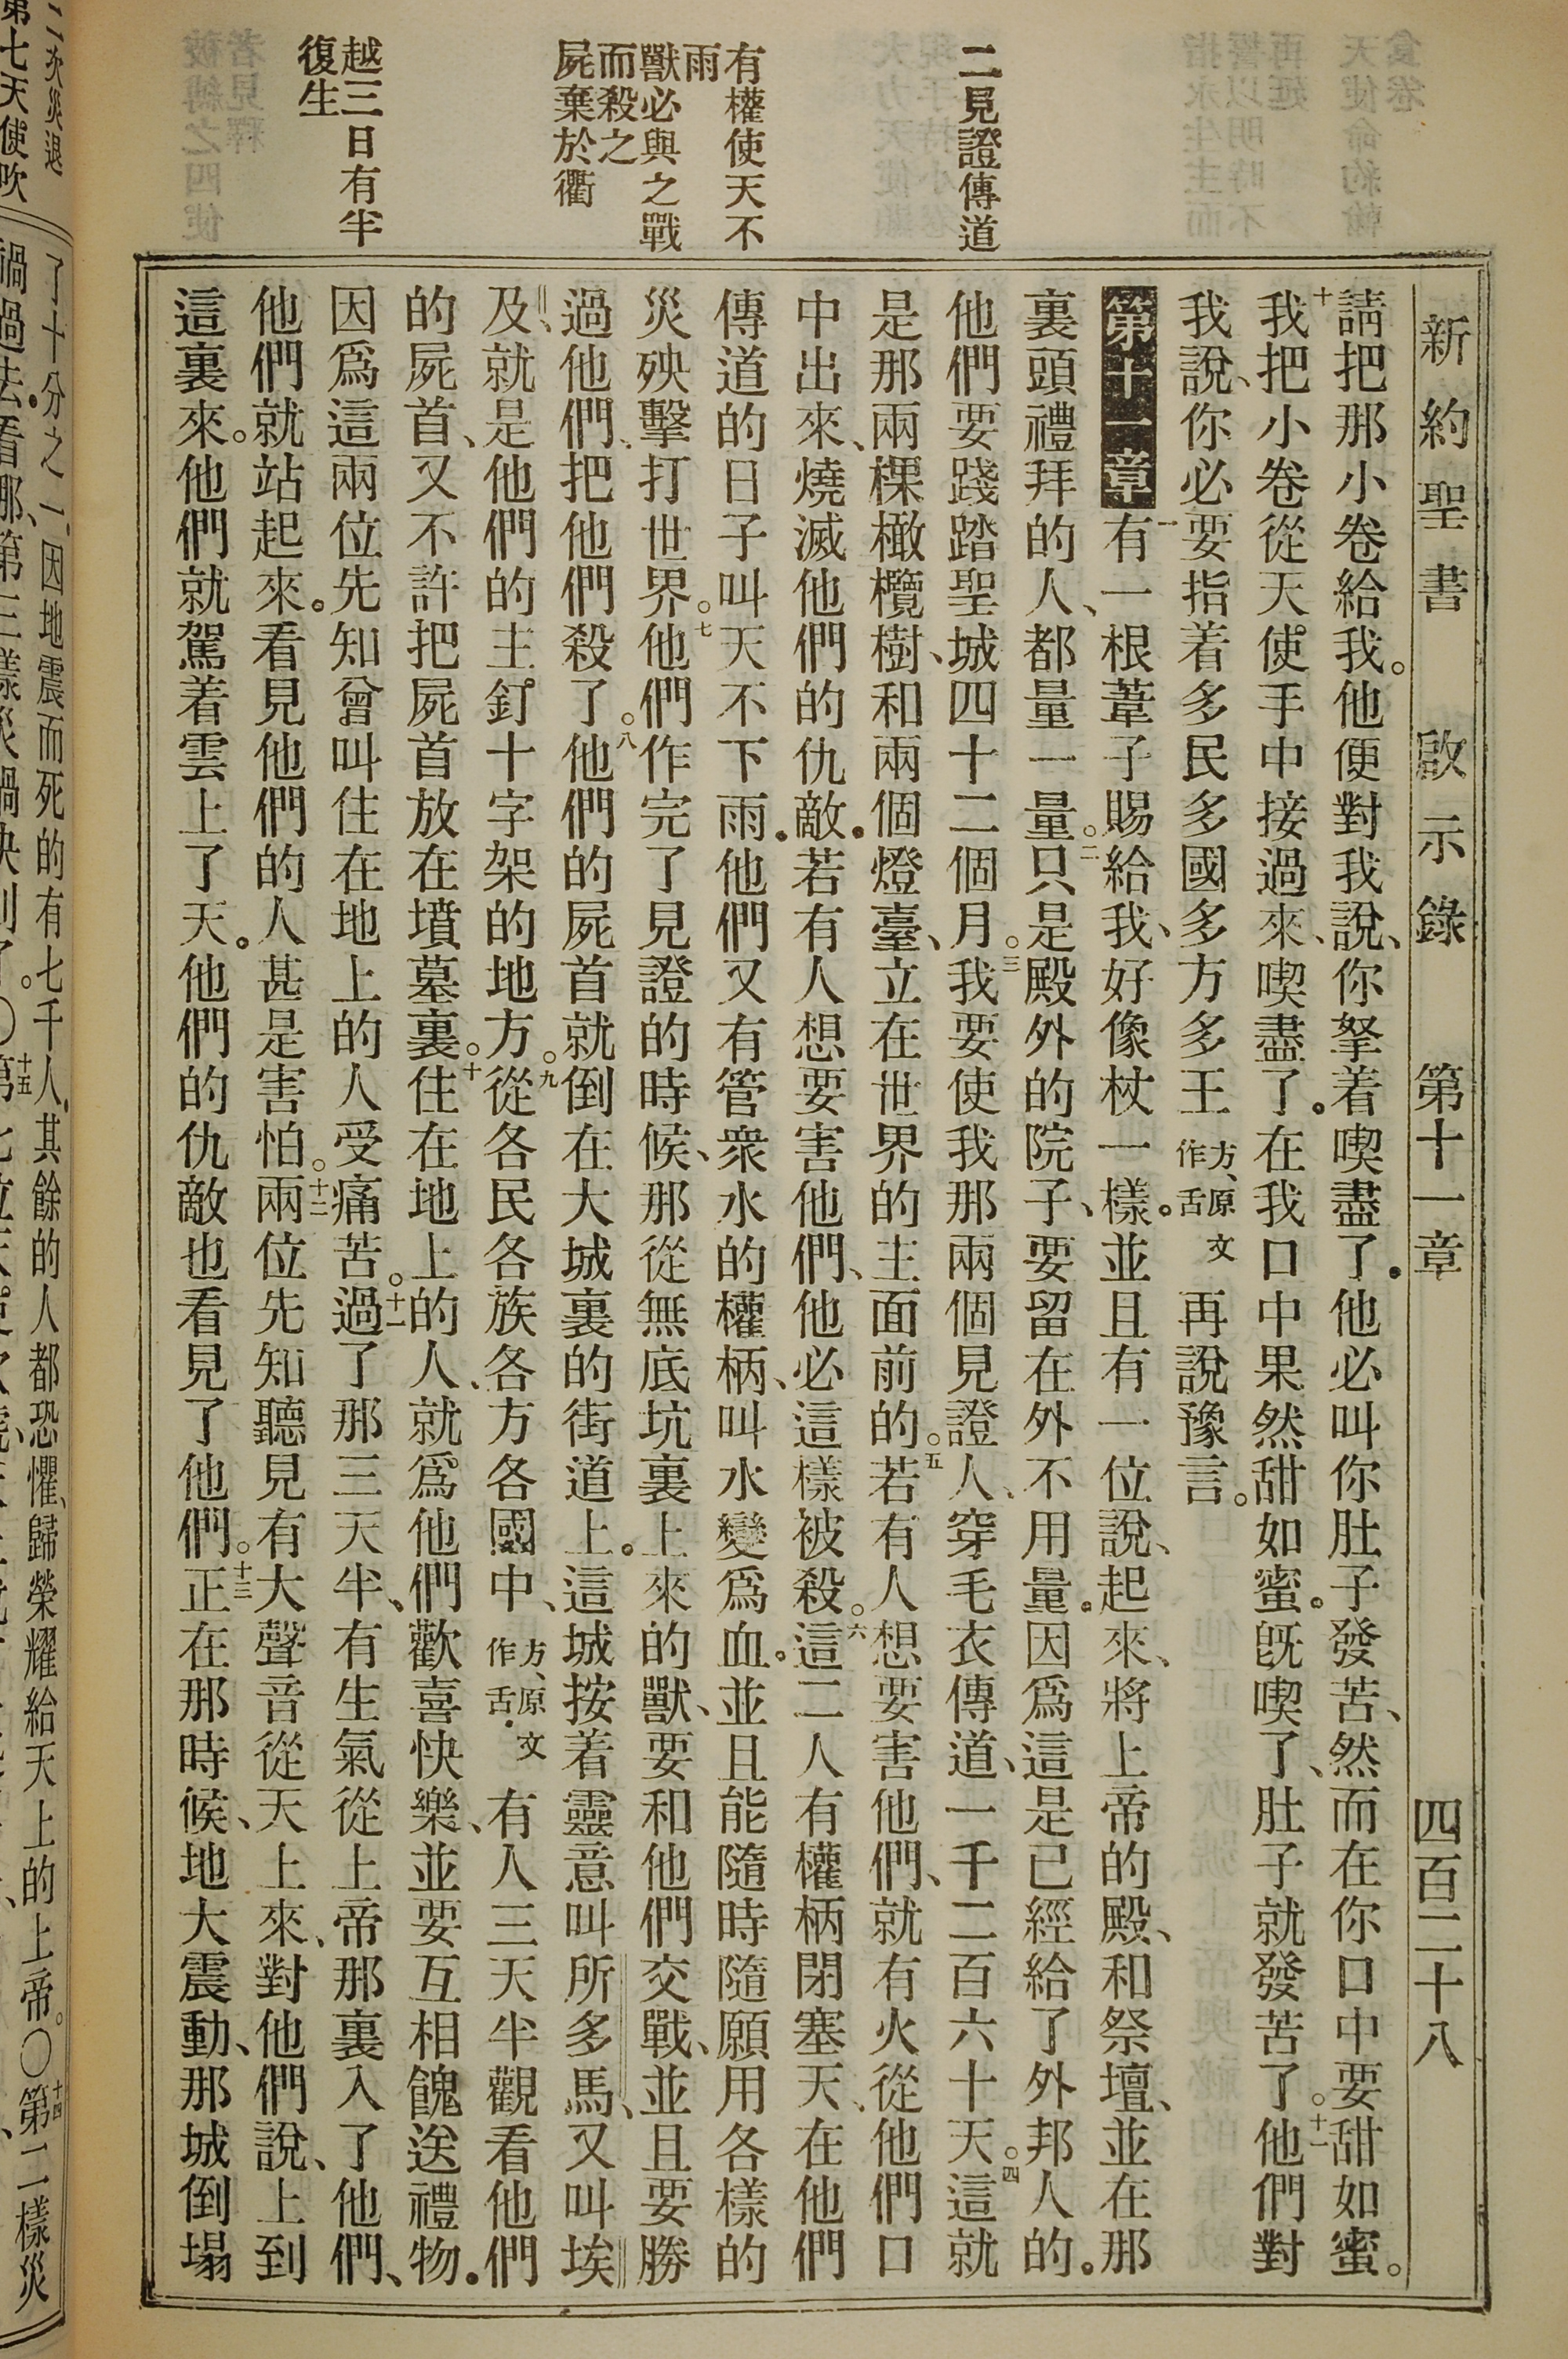 新約聖書 啟示錄 第十一章 四百二十八
二見證傳道
有權使天不
雨
獸必與之戰
而殺之
屍棄於衢
越三日有半
復生
請把那小卷給我。他便對我說、你拏着喫盡了.他必叫你肚子發苦、然而在你口中要甜如蜜。
十我把小卷從天使手中接過來、喫盡了.在我口中果然甜如蜜.旣喫了、肚子就發苦了。十一他們對
我說、你必要指着多民多國多方多王方、原文作舌再說豫言。
第十一章 一有一根葦子賜給我、好像杖一樣.並且有一位說、起來、將上帝的殿、和祭壇、並在那
裏頭禮拜的人、都量一量。二只是殿外的院子、要留在外不用量.因爲這是已經給了外邦人的.
他們要踐踏聖城四十二個月。三我要使我那兩個見證人、穿毛衣傳道、一千二百六十天。四這就
是那兩棵橄欖樹、和兩個燈臺、立在世界的主面前的。五若有人想要害他們、就有火從他們口
中出來、燒滅他們的仇敵.若有人想要害他們、他必這樣被殺。六這二人有權柄閉塞天、在他們
傳道的日子叫天不下雨.他們又有管衆水的權柄、叫水變爲血.並且能隨時隨願用各樣的
災殃擊打世界。七他們作完了見證的時候、那從無底坑裏上來的獸、要和他們交戰、並且要勝
過他們、把他們殺了。八他們的屍首就倒在大城裏的街道上.這城按着靈意叫所多馬、又叫埃
及、就是他們的主釘十字架的地方。九從各民各族各方各國中、方、原文作舌.有人三天半觀看他們
的屍首、又不許把屍首放在墳墓裏。十住在地上的人、就爲他們歡喜快樂、並要互相餽送禮物.
因爲這兩位先知曾叫住在地上的人受痛苦。十一過了那三天半、有生氣從上帝那裏入了他們、
他們就站起來.看見他們的人甚是害怕。十二兩位先知聽見有大聲音從天上來、對他們說、上到
這裏來。他們就駕着雲上了天.他們的仇敵也看見了他們。十三正在那時候、地大震動、那城倒塌
二次災退
第七天使吹
了十分之一、因地震而死的有七千人.其餘的人都恐懼、歸榮耀給天上的上帝。〇十四第二樣災
禍過去.看那第三樣災禍快到了。〇十五第七位天使吹號